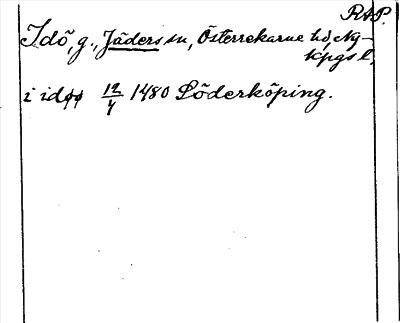 RAP.
Idö, g., Jäders sn, Österrekarne hd, Ny-
kpgs l,
i idøø 12/4 1480 Söderköping.